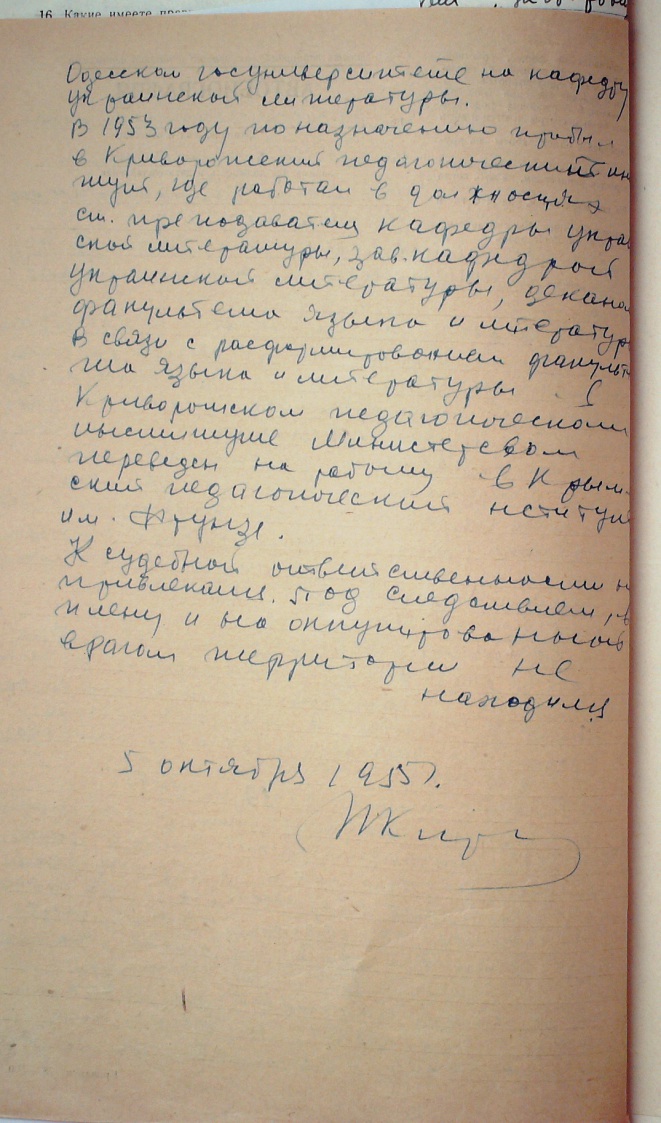 16. Какие имеете
Одесском госуниверситете на кафедру
украинской литературы.
В 1953 году по назначению прибыл
в Криворожский педагогический ин
титут, где работал в должностях
ст. преподавателя кафедры украи
ской литературы, зав. кафедрой
украинской литературы, декана
факультета языка и литератур
В связи с расформированием факульт
та языка и литературы в
Криворожском педагогическом
институте Министерством
переведен на работу в Крым-
ский педагогический нститут
им. Фрунзе.
К судебной ответственности н
привлекался. Под следствием, в
плену и на оккупированной
врагом территории не
находился
5 октября 1955 г.